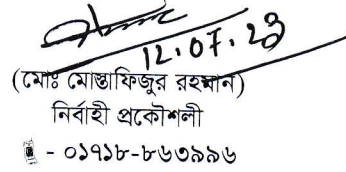 12.07.23
(মোঃ মোস্তাফিজুর রহমান)
নির্বাহী প্রকৌশলী
- ০১৭১৮-৮৬৩৯৯৬